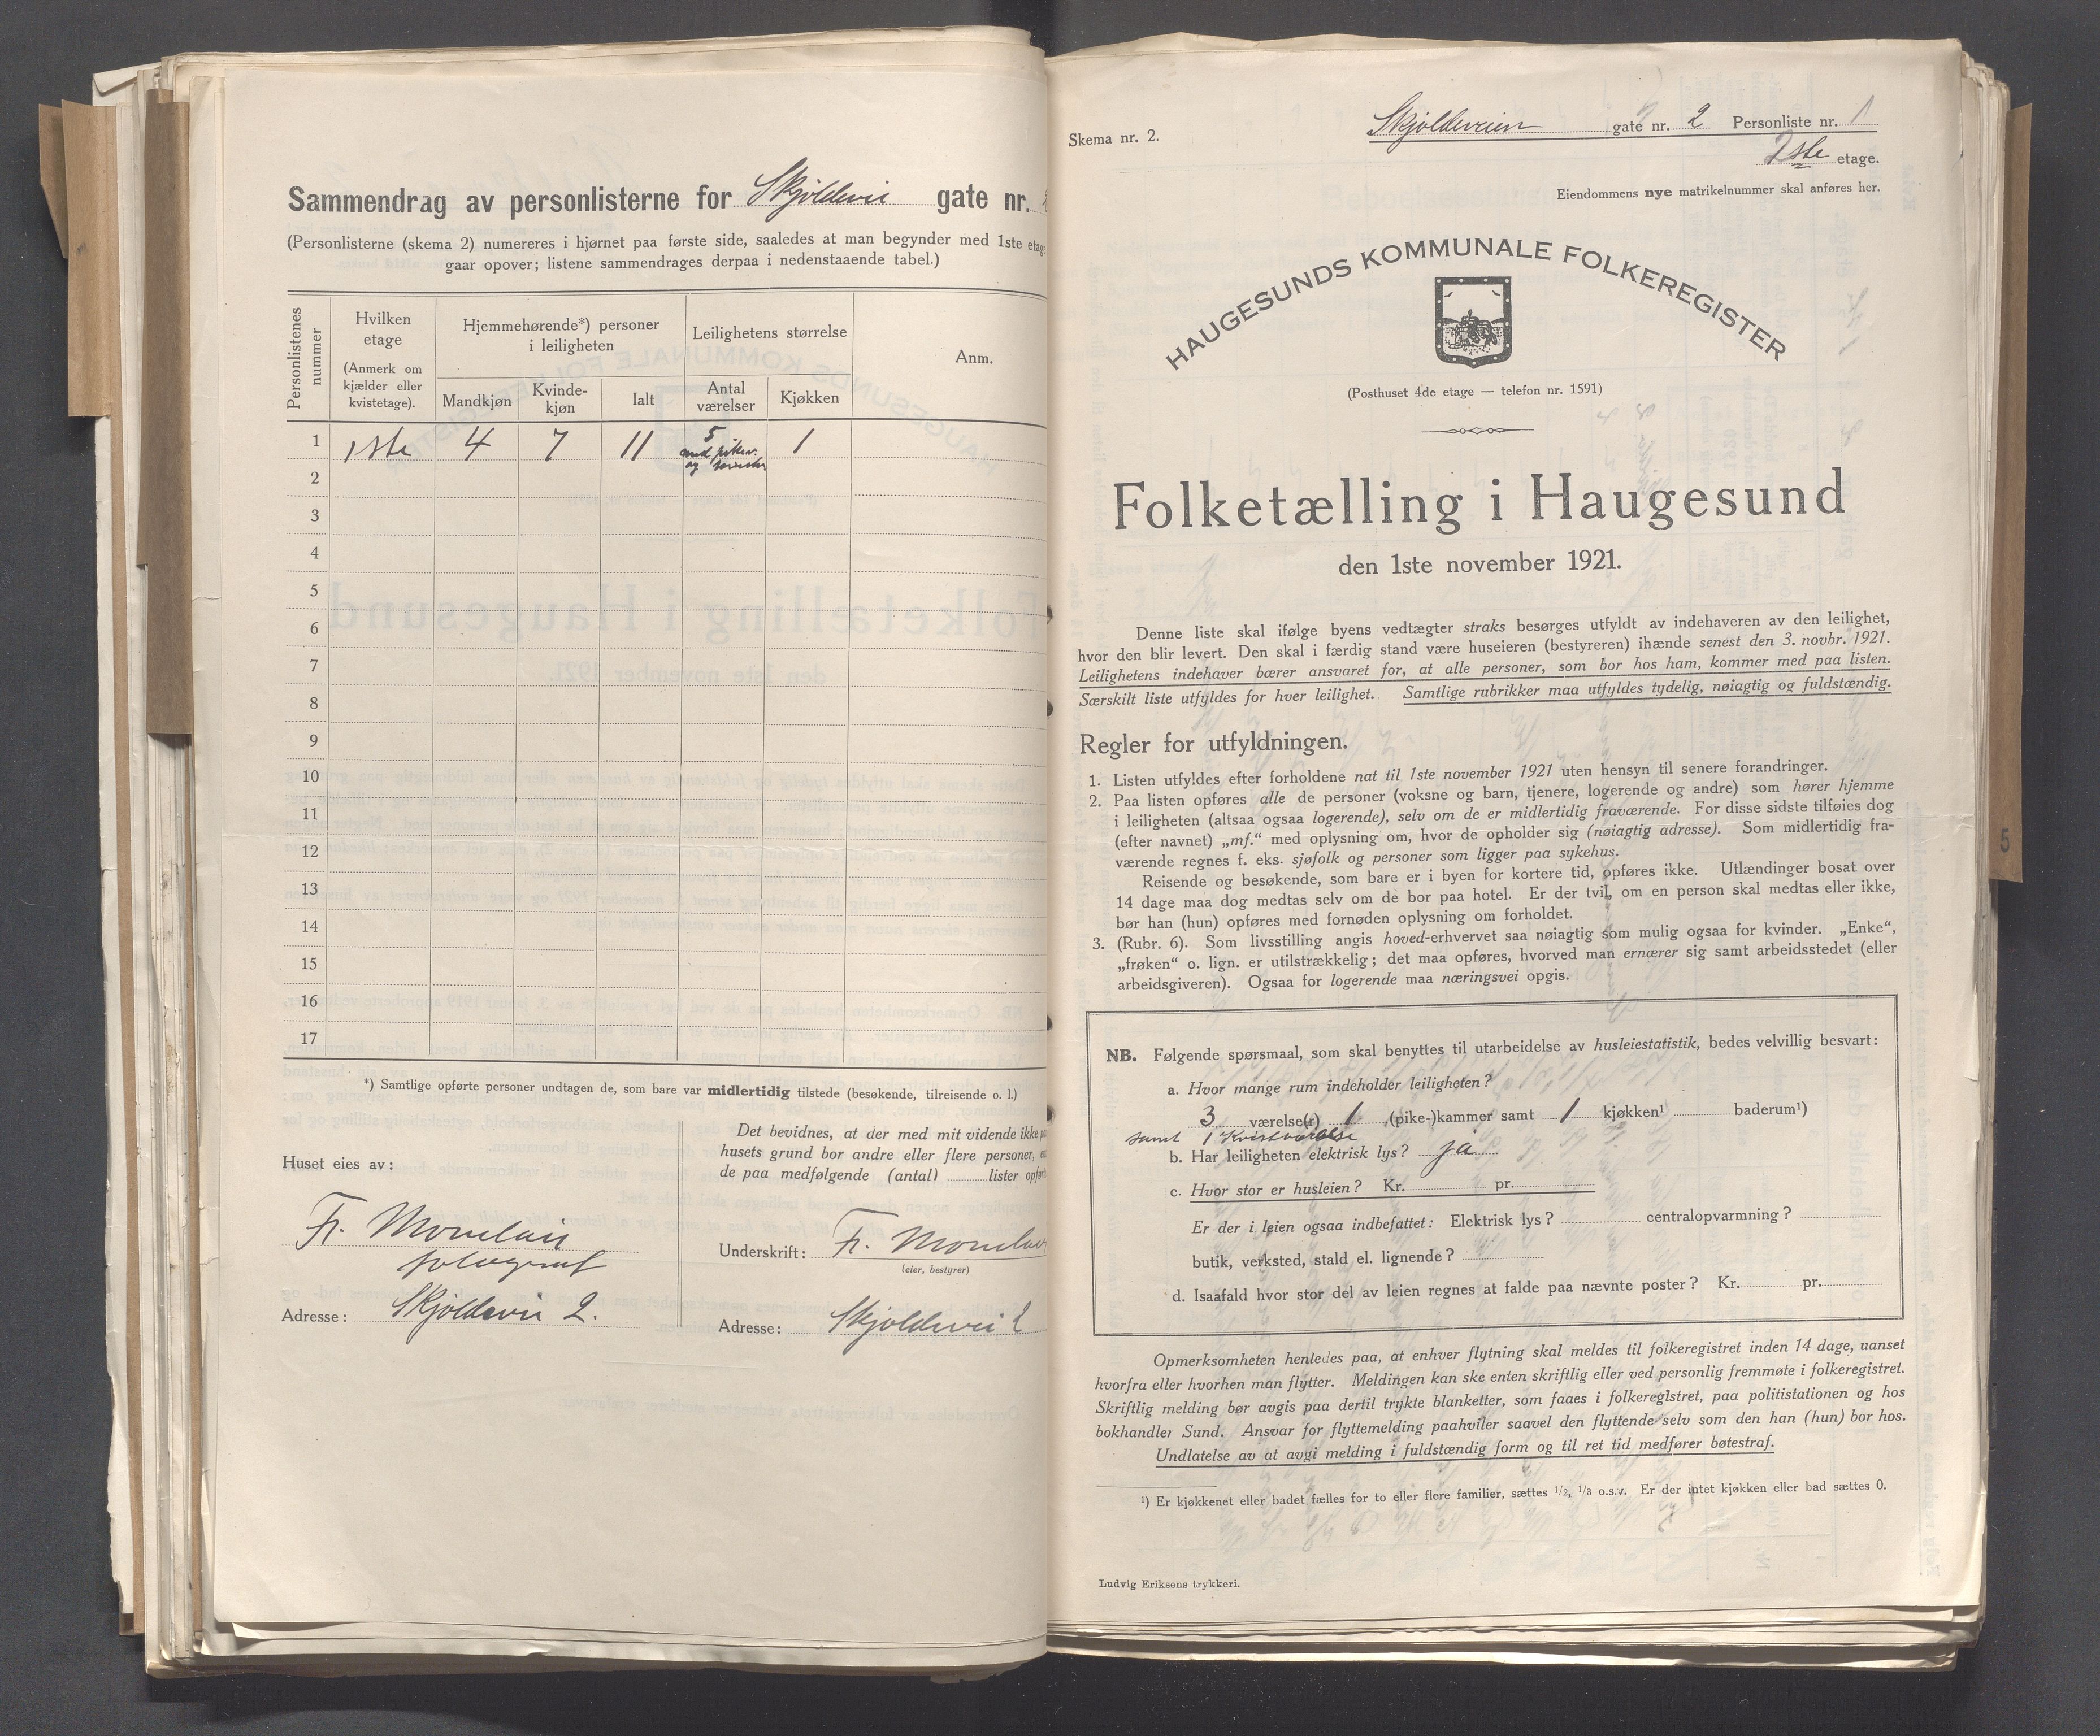 Sammendrag av personlisterne for Skjoldevei gate nr.
(Personlisterne (skema 2) numereres i hjørnet paa første side, saaledes at man begynder med 1ste etage
gaar opover; listene sammendrages derpaa i nedenstaaende tabel.)
Personlistenes nummer
Hvilken etage
(Anmerk om kjælder eller kvistetage).
Hjemmehørende*) personer i leiligheten
Mandkjøn
Kvinde-kjøn
Ialt
Leilighetens størrelse
Antal værelser
Kjøkken
Anm.
1 1ste 4 7 11 5 1
med pikev.
og
2
3
4
5
6
7
8
9
10
11
12
13
14
15
16
17
*) Samtlige opførte personer undtagen de, som bare var midlertidig tilstede (besøkende, tilreisende o. l.)
Huset eies av:
Fr. Monclair
fotograf
Adresse: Skjoldevei 2.
Det bevidnes, at der med mit vidende ikke paa
husets grund bor andre eller flere personer,
de paa medfølgende (antal) lister opført
Underskrift: Fr. Monclair
(eier, bestyrer)
Adresse: Skjoldevei 2
Skema nr. 2.
Skjoldeveien gate nr. 2 Personliste nr. 1
1ste etage.
Eiendommens nye matrikelnummer skal anføres her.
HAUGESUNDS KOMMUNALE FOLKEREGISTER
(Posthuset 4de etage — telefon nr. 1591)
Folketælling i Haugesund
den 1ste november 1921.
Denne liste skal ifølge byens vedtægter straks besørges utfyldt av indehaveren av den leilighet,
hvor den blir levert. Den skal i færdig stand være huseieren (bestyreren) ihænde senest den 3. novbr. 1921.
Leilighetens indehaver bærer ansvaret for, at alle personer, som bor hos ham, kommer med paa listen.
Særskilt liste utfyldes for hver leilighet. Samtlige rubrikker maa utfyldes tydelig, nøiagtig og fuldstændig.
Regler for utfyldningen.
1. Listen utfyldes efter forholdene nat til 1ste november 1921 uten hensyn til senere forandringer.
2. Paa listen opføres alle de personer (voksne og barn, tjenere, logerende og andre) som hører hjemme
i leiligheten (altsaa ogsaa logerende), selv om de er midlertidig fraværende. For disse sidste tilføies dog
(efter navnet) „mf.“ med oplysning om, hvor de opholder sig (nøiagtig adresse). Som midlertidig fra-
værende regnes f. eks. sjøfolk og personer som ligger paa sykehus.
Reisende og besøkende, som bare er i byen for kortere tid, opføres ikke. Utlændinger bosat over
14 dage maa dog medtas selv om de bor paa hotel. Er der tvil, om en person skal medtas eller ikke,
bør han (hun) opføres med fornøden oplysning om forholdet.
3. (Rubr. 6). Som livsstilling angis hoved-erhvervet saa nøiagtig som mulig ogsaa for kvinder. „Enke“,
„frøken“ o. lign. er utilstrækkelig; det maa opføres, hvorved man ernærer sig samt arbeidsstedet (eller
arbeidsgiveren). Ogsaa for logerende maa næringsvei opgis.
NB. Følgende spørsmaal, som skal benyttes til utarbeidelse av husleiestatistik, bedes velvillig besvart:
a. Hvor mange rum indeholder leiligheten?
3 værelse(r) 1 (pike-)kammer samt 1 kjøkken¹ baderum¹)
samt 1 Kvistværelse
b. Har leiligheten elektrisk lys? ja
c. Hvor stor er husleien? Kr. pr.
Er der i leien ogsaa indbefattet: Elektrisk lys? centralopvarmning?
butik, verksted, stald el. lignende?
d. Isaafald hvor stor del av leien regnes at falde paa nævnte poster? Kr. pr.
Opmerksomheten henledes paa, at enhver flytning skal meldes til folkeregistret inden 14 dage, uanset
hvorfra eller hvorhen man flytter. Meldingen kan ske enten skriftlig eller ved personlig fremmøte i folkeregistret.
Skriftlig melding bør avgis paa dertil trykte blanketter, som faaes i folkeregistret, paa politistationen og hos
bokhandler Sund. Ansvar for flyttemelding paahviler saavel den flyttende selv som den han (hun) bor hos.
Undlatelse av at avgi melding i fuldstændig form og til ret tid medfører bøtestraf.
¹) Er kjøkkenet eller badet fælles for to eller flere familier, sættes 1/2, 1/3 o.s.v. Er der intet kjøkken eller bad sættes 0.
Ludvig Eriksens trykkeri.
5